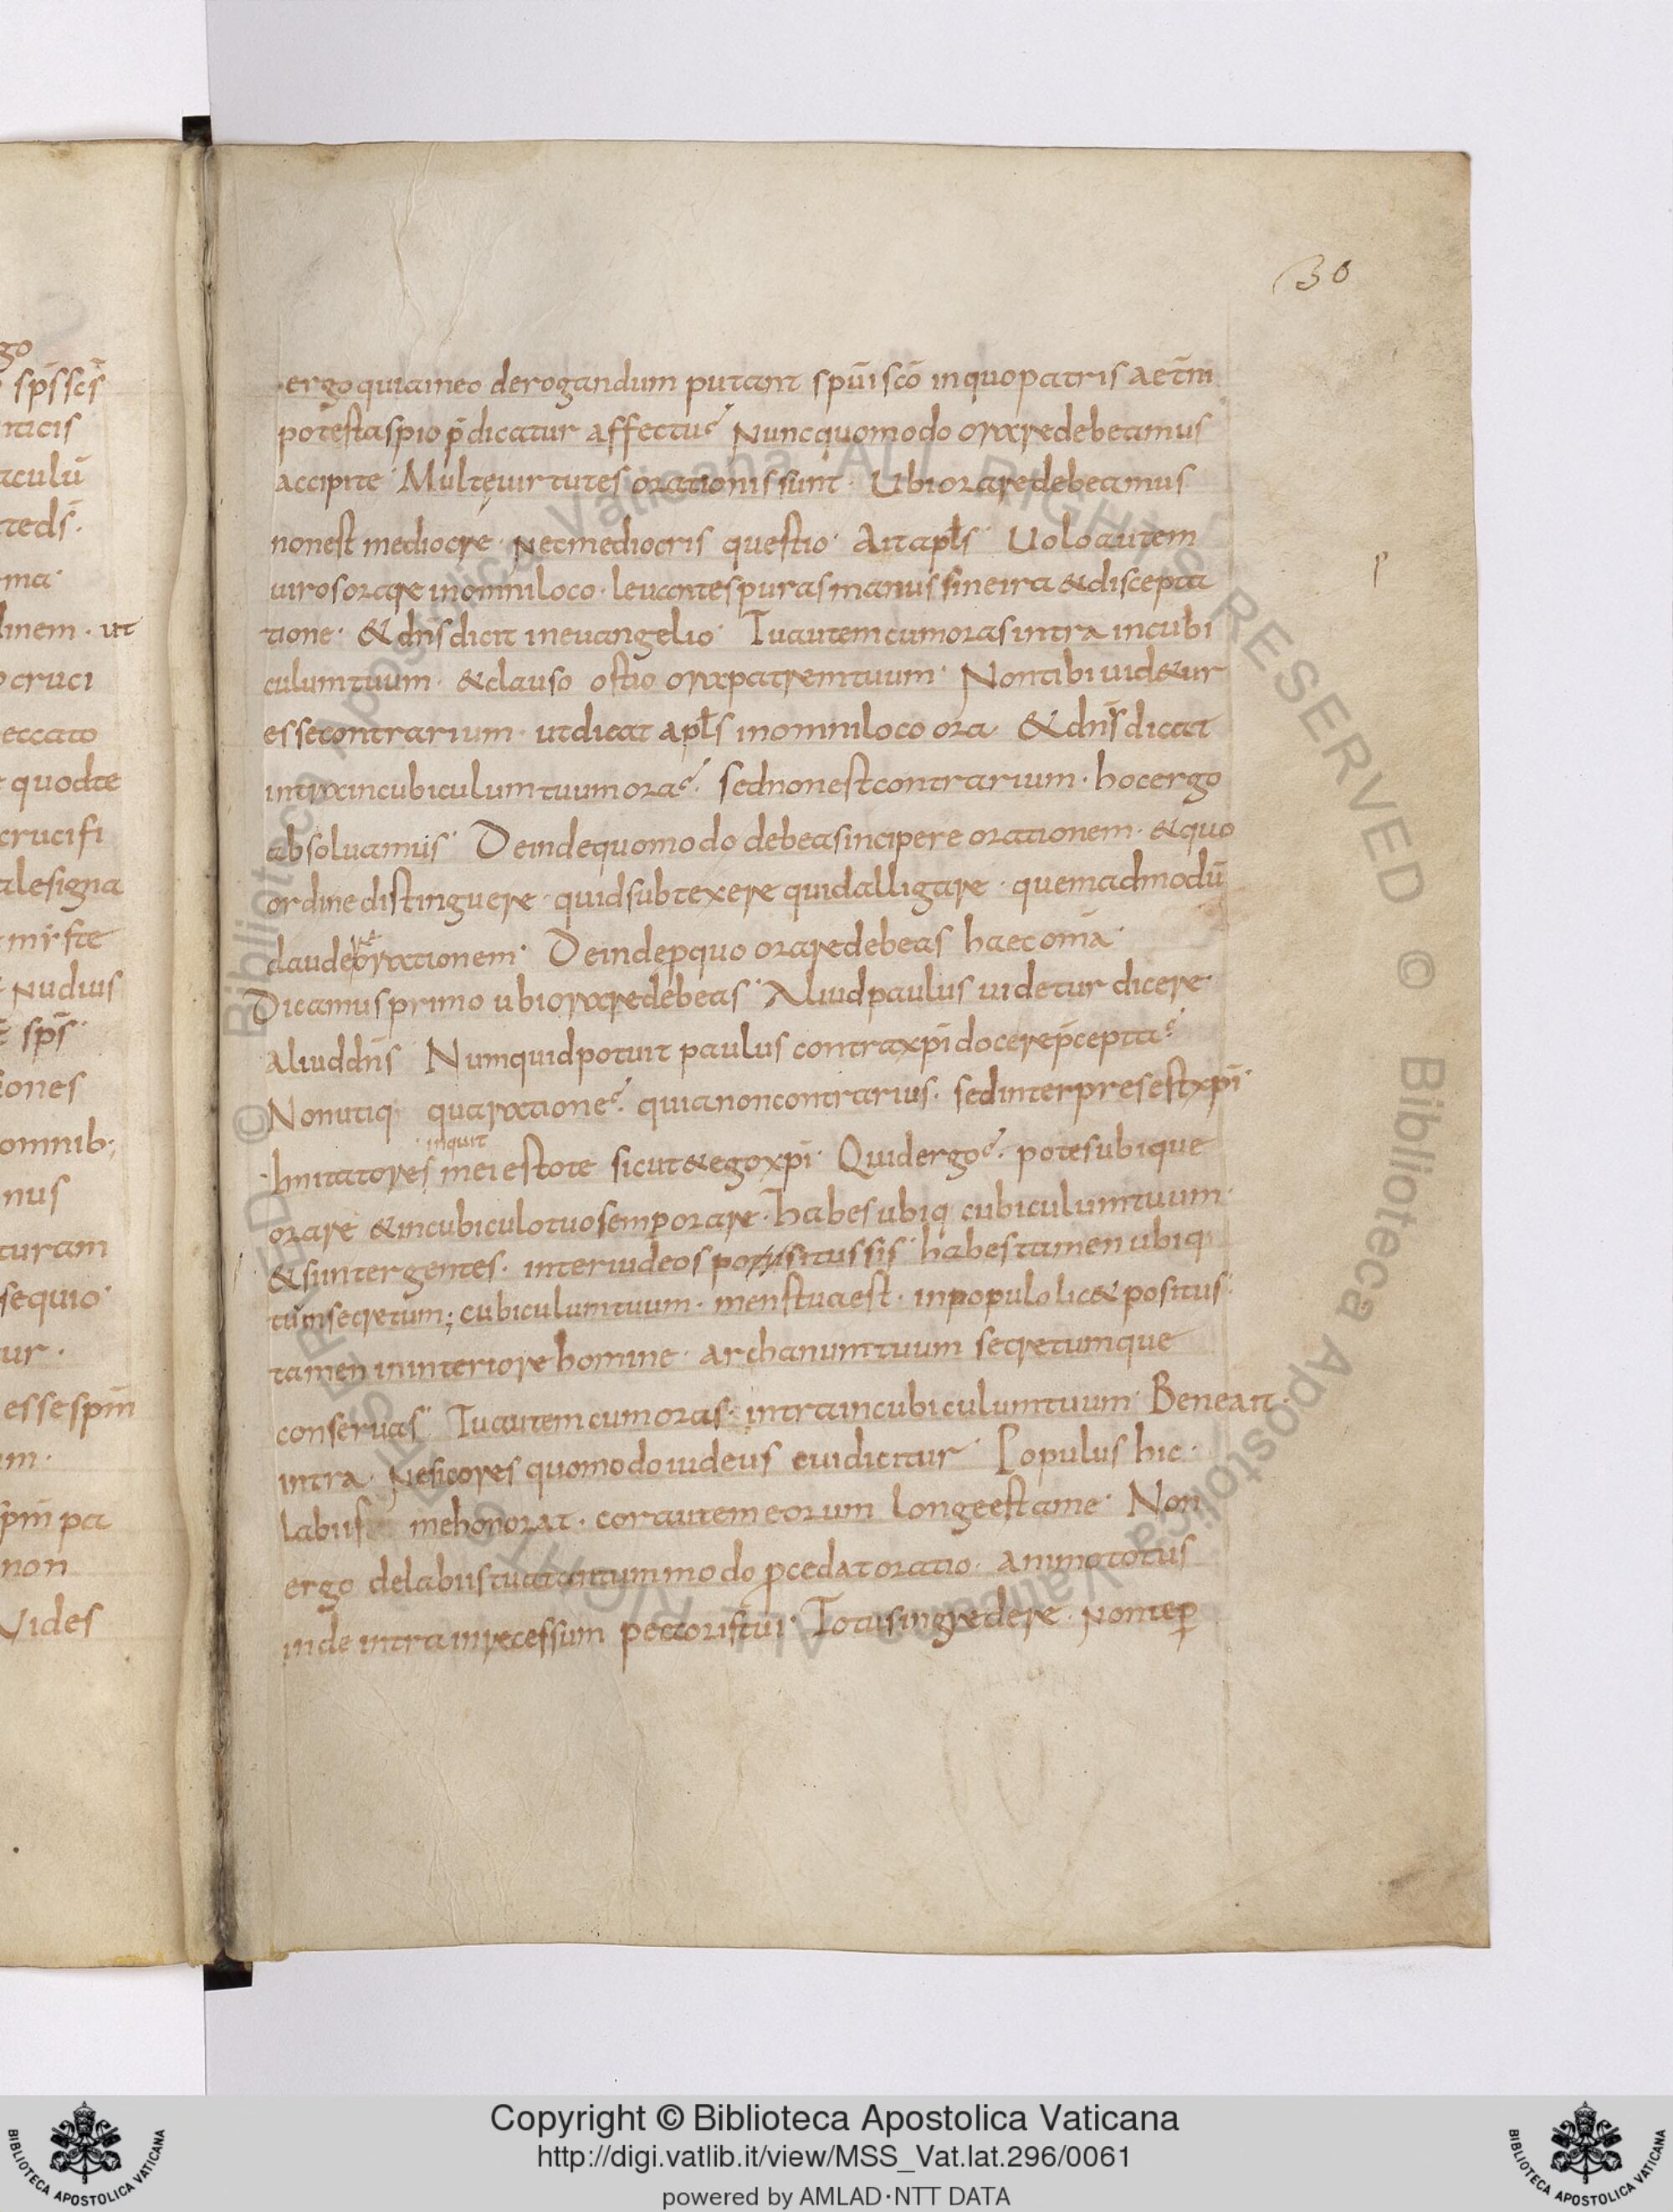 30
ergo quia in eo derogandum putant spūi scō in quo patris aet̄ni
potestas pio p̄dicatur affectu Nunc quomodo orare debeamus
accipite · Multę uirtutes orationis sunt · Ubi orare debeamus
non est mediocre · Nec mediocris questio · Ait apl̄s Uolo autem
uiros orare in omni loco · leuantes puras manus sine ira & discepta
tione · & dn̄s dicit in euangelio · Tu autem cum oras intra in cubi
culum tuum · & clauso ostio ora patrem tuum · Non tibi uid&ur
esse contrarium · ut dicat apl̄s in omni loco ora & dn̄s dicat
intra in cubiculum tuum ora · sed non est contrarium · hoc ergo
absoluamus · Deinde quomodo debeas incipere orationem · & quo
ordine distinguere · quid subtexere quid alligare · quemadmodū
claudere orationem · Deinde p quo orare debeas haec om̄a ·
Dicamus primo ubi orare debeas · Aliud paulus uidetur dicere ·
aliud dn̄s Numquid potuit paulus contra xp̄i docere p̄cepta
Non utiq; qua ratione · quia non contrarius · sed interpres est xp̄i ·
Imitatores inquit mei estote sicut & ego xpi · Quid ergo · potes ubique
orare & in cubiculo tuo semp orare · habes ubiq; cubiculum tuum ·
& si inter gentes · inter iudeos positus sis · habes tamen ubiq;
tuum secretum; cubiculum tuum · mens tua est · in populo lic& positus ·
tamen in interiore homine · archanum tuum secretumque
conseruas · Tu autem cum oras · intra in cubiculum tuum · Bene ait ·
intra · Ne sic ores quomodo iudeus cui dicitur · Populus hic ·
labiis me honorat · cor autem eorum longe est a me · Non
ergo de labiis tua tantummodo p̱cedat oratio · animo totus
inde intra in recessum pectoris tui · Totus ingredere · Non te p̱
go
sp̄s sc̄s
nticis
aculū
te ds̄ ·
ma ·
linem · ut
cruci
eccato
quod te
crucifi
ale signa
Nudius
sp̄s ·
iones
omnib;
nus
turam
sequio ·
ur ·
esse spm̄
m ·
spm̄ pa
non
Vides
© Biblioteca Apostolica Vaticana ALL RIGHTS RESERVED © Biblioteca Apostolica Vaticana ALL RIGHTS RESERVED
BIBLIOTECA APOSTOLICA VATICANA
Copyright © Biblioteca Apostolica Vaticana
http://digi.vatlib.it/view/MSS_Vat.lat.296/0061
powered by AMLAD·NTT DATA
BIBLIOTECA APOSTOLICA VATICANA